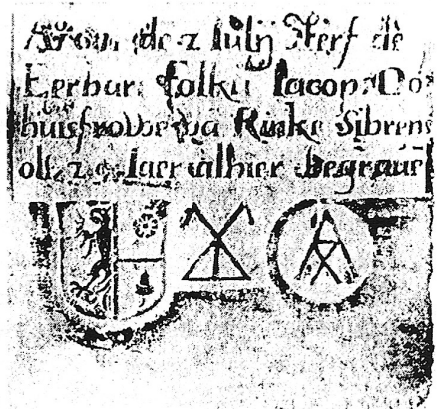 de 2 Iulij sterf de
Eerbare folku Iacops Do
huisfrovwe va Rinke Sibrens
olt 29 Iaer alhier begrave